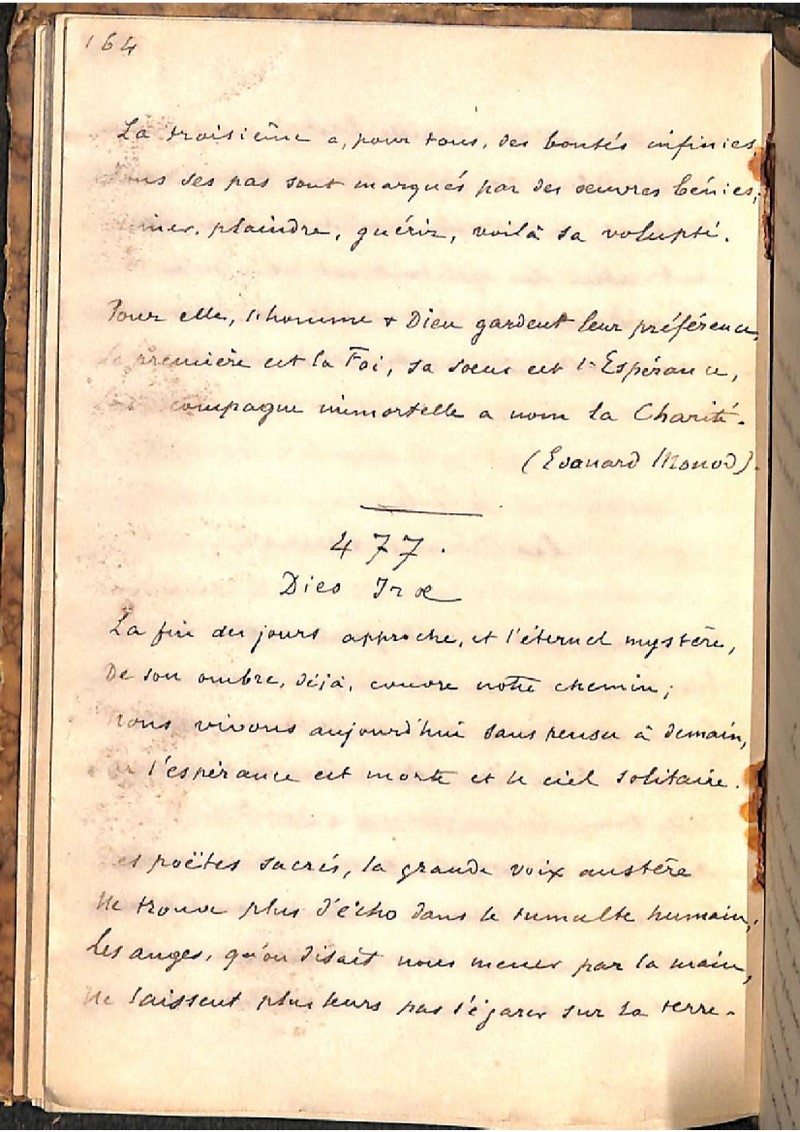 164
La troisième a, pour tous, des bontés infinies
Tous ses pas sont marqués par des œuvres bénies;
Aimer, plaindre, guérir, voilà sa volupté.
Pour elle, l'homme & Dieu gardent leur préférence,
La première est la Foi, sa soeur est l'Espérance,
compagne immortelle a nom la Charité.
(Edouard Monod).
477.
Dies Iræ
La fin des jours approche, et l'éternel mystère,
De son ombre, déjà, couvre notre chemin;
Nous vivons aujourd'hui sans penser à demain,
l'espérance est morte et le ciel solitaire.
Des poëtes sacrés, la grande voix austère
Ne trouve plus d'écho dans le tumulte humain;
Les anges, qu'on disait nous mener par la main,
Ne laissent plus leurs pas s'égarer sur la terre.